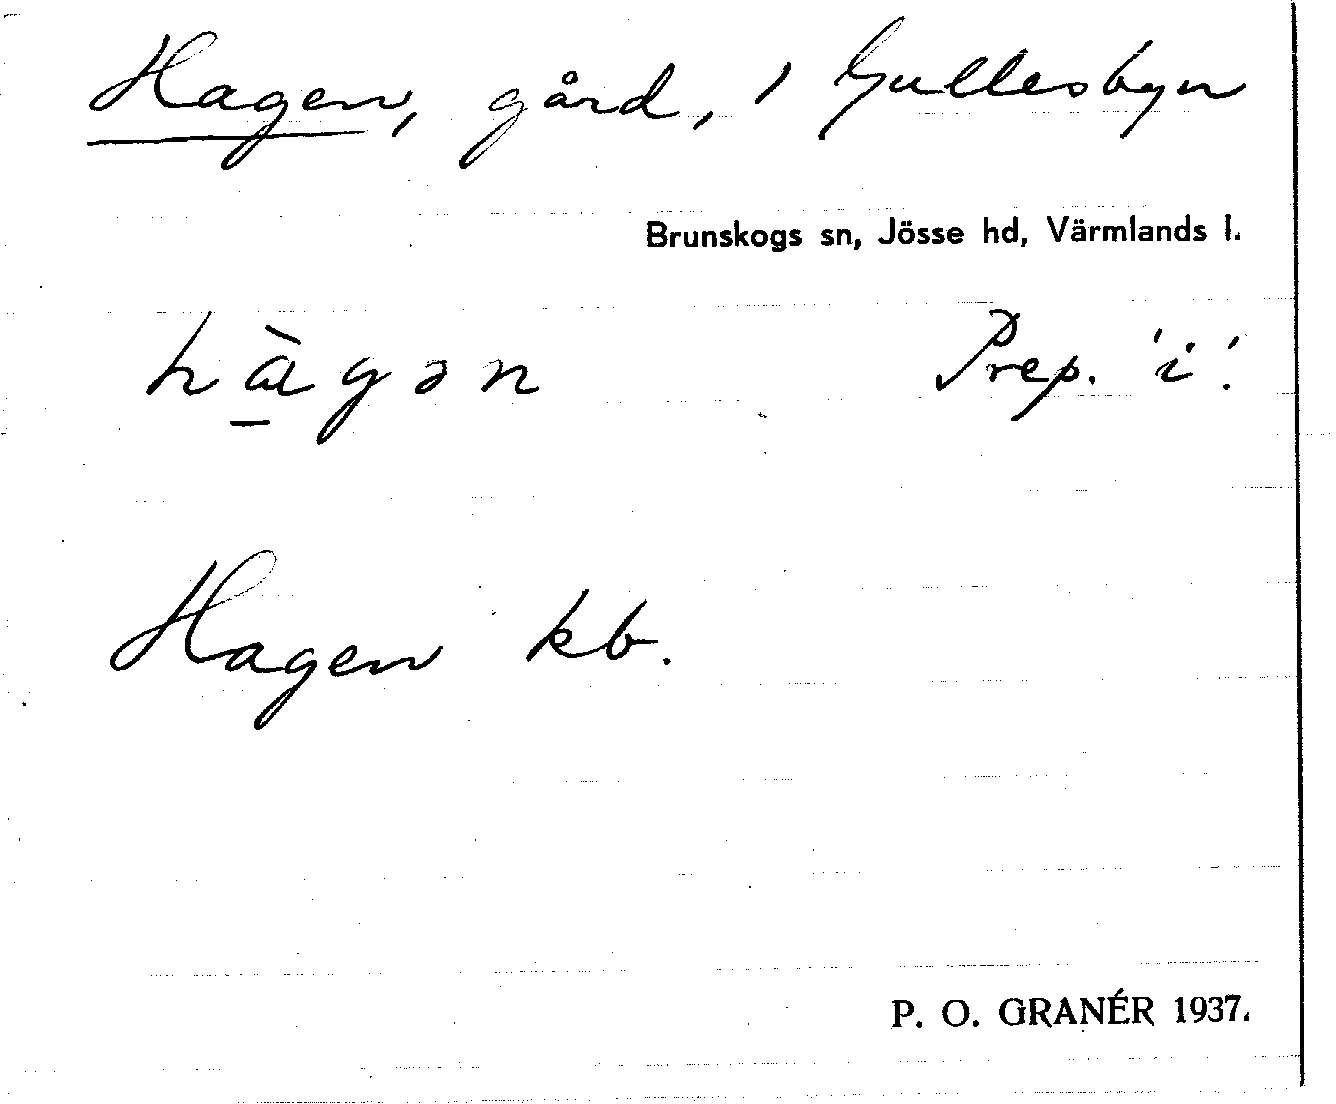 Hagen, gård, i Gullesbyn
Brunskogs sn, Jösse hd, Värmlands l.
hà̠gən Prep. 'i'.
Hagen kb.
P. O. GRANÉR 1937.